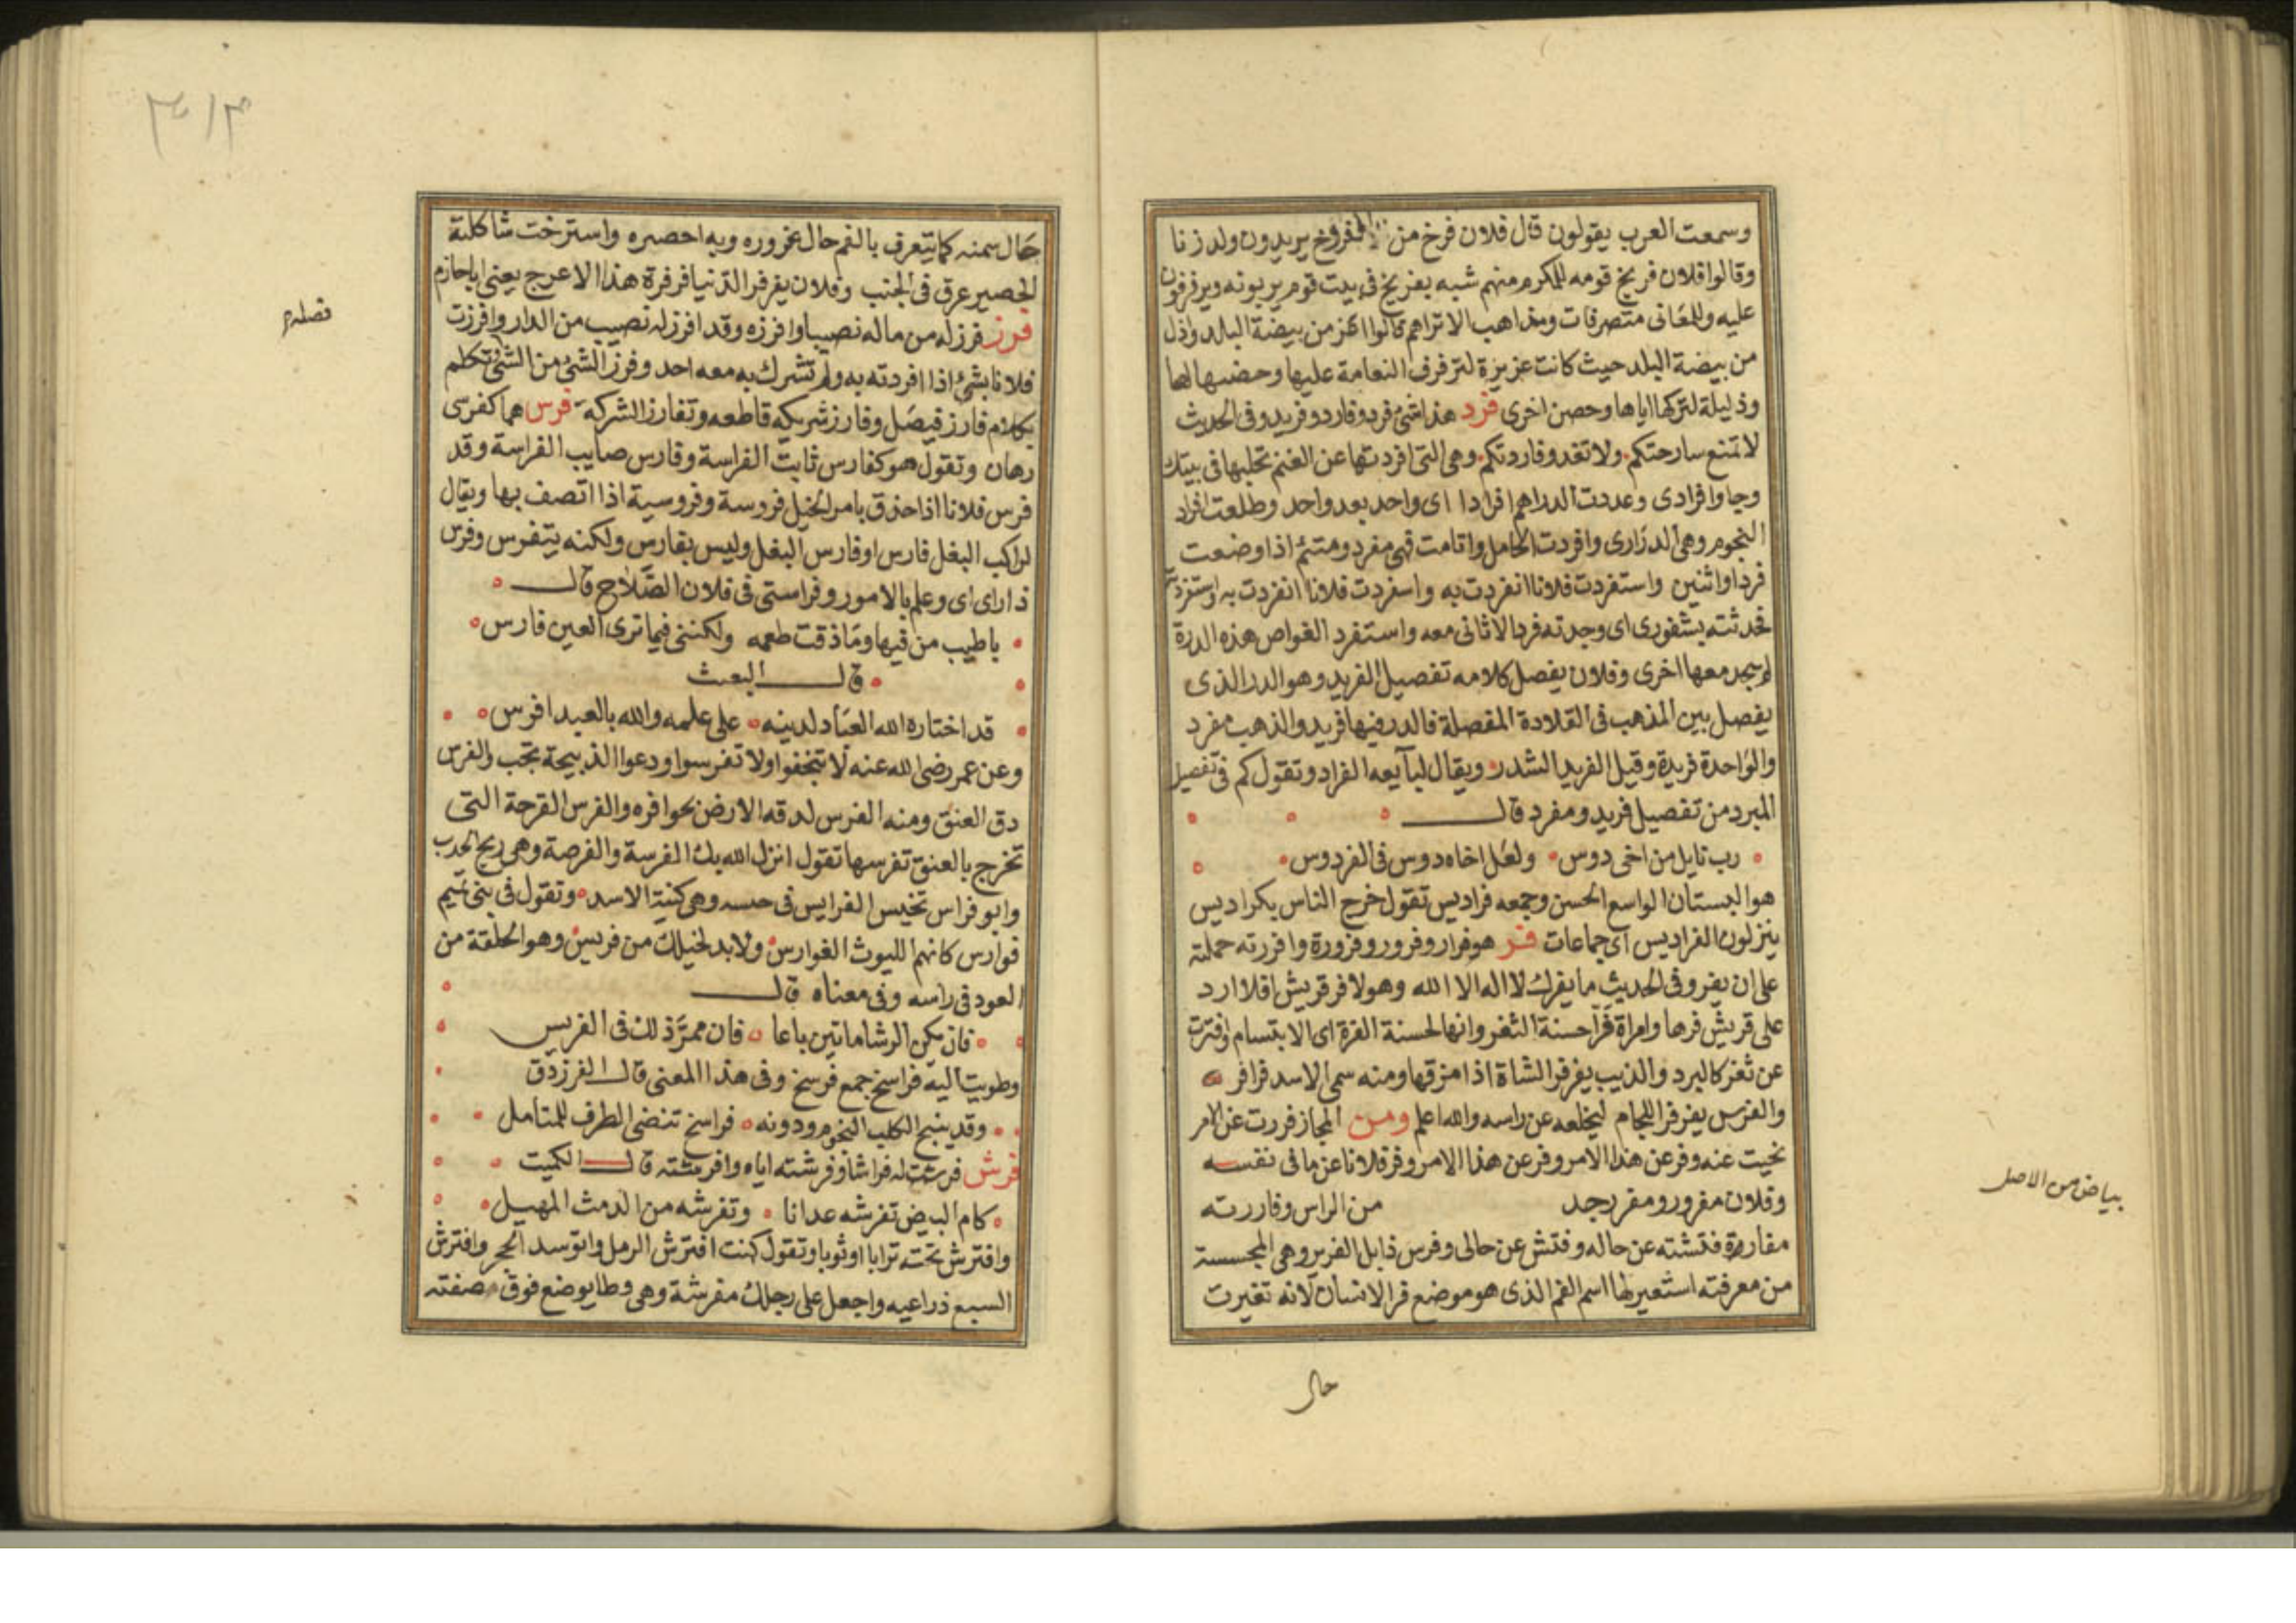 وسمعت العرب يقولون قال فلان فرخ من المفروخ يريدون ولد زنا
وقالوا فلان فريخ قومه للمكرم منهم شبه بفريخ في بيت قوم يربونه ويرفرفون
عليه وللمعانى متصرفات ومذاهب الاتراهم قالوا اعز من بيضة البلد واذل
من بيضة البلد حيث كانت عزيزة لترفرف النعامة عليها وحضنها لها
وذليلة لتركها اياها وحصن اخرى فرد هذا شئ فرد وفارد وفريد وفى الحديث
لا تمنع سارحتكم ولا تعد وفاردتكم وهى التى افردتها عن الغنم تحلبها فى بيتك
وجاوا فرادى وعددت الدراهم افرادا اى واحد بعد واحد وطلعت افراد
النجوم وهى الدرارى وافردت الحامل واتامت فهى مفرد ومتئم اذا وضعت
فردا او اثنين واستفردت فلانا انفردت به واسفردت فلانا انفردت به
فحدثته بشقورى اى وجدته فردا لا ثانى معه واستفرد الغواص هذه الدرة
لم يجد معها اخرى وفلان يفصل كلامه تفصيل الفريد وهو الدر الذى
يفصل بين الذهب فى القلادة المفصلة فالدر فيها فريد والذهب مفرد
والواحدة فريدة وقيل الفريد الشدر ويقال لبايعه الفراد وتقول كم فى تفصيل
المبرد من تفصيل فريد ومفرد قال
رب نايل من اخى دوس ولعل اخاه دوس فى الفردوس
هو البستان الواسع الحسن وجمعه فراديس تقول خرج الناس بكراديس
ينزلون الفراديس اى جماعات فر هو فرار وفرور وفرورة وافررته حملته
على ان يفر وفى الحديث ما يفرك لا اله الا الله وهولا فر قريش افلا ارد
على قريش فرها وامراة فرا حسنة الثغر وانها لحسنة الفرة اى الابتسام وافترت
عن ثغر كالبرد والذيب يفرفر الشاة اذا مزقها ومنه سمى الاسد فرافر
والفرس يفرفر اللجام ليخلعه عن راسه والله اعلم ومن المجاز فررت عن الامر
بحيت عنه وفر عن هذا الامر وفر عن هذا الامر وفر فلانا عن ما فى نفسه
وفلان مفرور ومفر رجد من الراس وفاررته
مفاررة فتشته عن حاله وفتش عن حالى وفرس ذابل الفرير وهى المجسة
من معرفته استعير لها اسم الفم الذى هو موضع فر الانسان لانه تغيرت
حال
بياض من الاصل
حال سمنه كما يتعرف بالفم حال غروره وبه احصره واسترخت شاكلته
الحصير عرق فى الجنب وفلان يفرفر الدنيا فرفرة هذا الاعرج يعنى اباحازم
فرز فرز له من ماله نصيبا وافرزه وقد افرز له نصيب من الدار وافرزت
فلانا بشئ اذا افردته به ولم تشرك به معه احد وفرز الشئ من الشئ تكلم
بكلام فارز فيصل وفارز شريكه قاطعه وتفارز الشركه فرس هما كفرسى
رهان وتقول هو كفارس ثابت الفراسة وفارس صايب الفراسة وقد
فرس فلانا اذا حذق بامر الخيل فروسة وفروسية اذا اتصف بها ويقال
لراكب البغل فارس او فارس البغل وليس بفارس ولكنه يتفرس وفرس
ذا راى اى وعلم بالامور وفراستى فى فلان الصلاح قال
باطيب من فيها وما ذقت طعمه ولكننى فيما ترى العين فارس
قال البعث
قد اختاره الله العباد لدينه على علمه والله بالعبد افرس
وعن عمر رضى الله عنه لا تنخفوا ولا تفرسوا ودعوا الذبيحة تجب والفرس
دق العنق ومنه الفرس لدقه الارض بحوافره والفرس القرحة التى
تخرج بالعنق تفرسها تقول انزل الله بك الفرسة والفرصة وهى ريح الحدب
وابو فراس تخيس الفرايس فى وهى كنية الاسد وتقول فى بنى تميم
فوارس كانهم الليوث الغوارس ولا بد لحبلك من فريس وهو الحلقة من
العود فى راسه وفى معناه قال
فان يكن الرشا ماتين باعا فان ممر ذلك فى الفريس
وطويت اليه فراسخ جمع فرسخ وفى هذا المعنى قال الفرزدق
وقد ينبح الكلب النجوم ودونه فراسخ تنضى الطرف للمتامل
فرش فرشت له فراشا وفرشته اياه وافرشته قال الكميت
كام البيض تفرشه عدانا وتفرشه من الدمث المهيل
وافترش تحته ترابا او ثوبا وتقول كنت افترش الرمل واتوسد الحجر وافترش
السبع ذراعيه واجعل على رجلك مفرشة وهى وطا يوضع فوق صفته